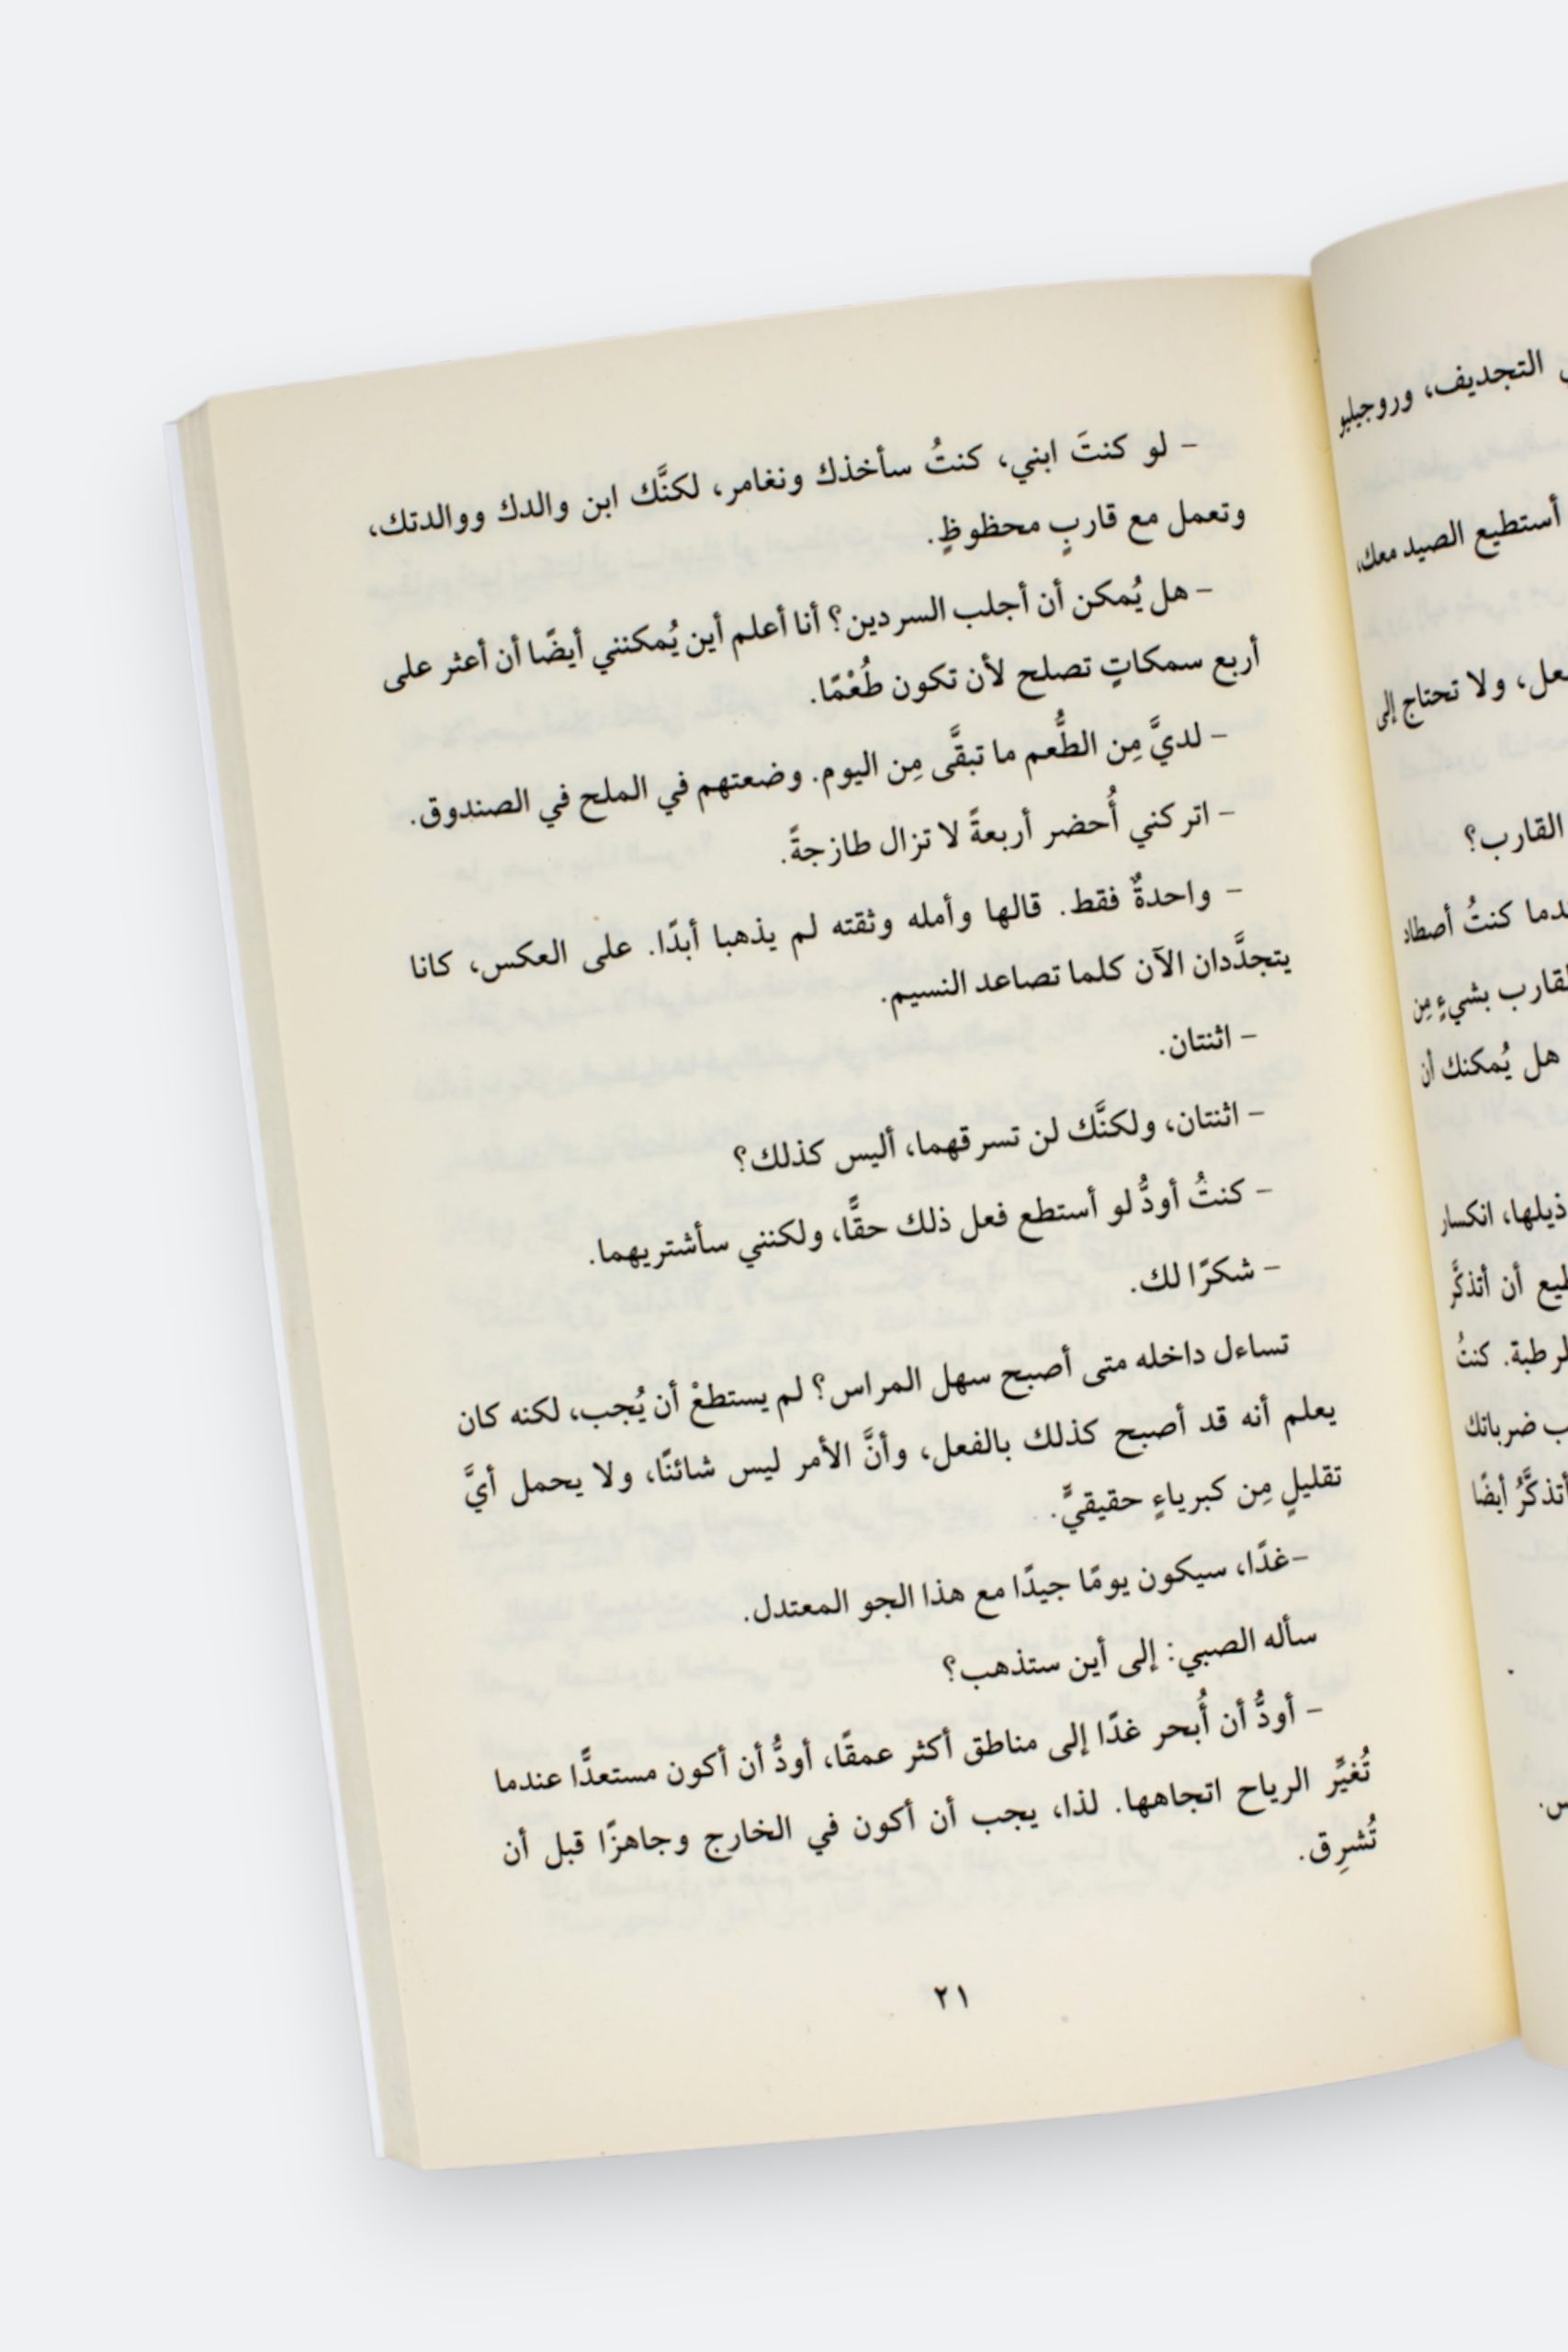 التجديف، وروجيليو
أستطيع الصيد معك،
ولا تحتاج إلى
القارب؟
كنتُ أصطاد
بشيءٍ مِن
هل يُمكنك أن
ذيلها، انكسار
أن أتذكَّر
كنتُ
ضرباتك
أيضًا
– لو كنتَ ابني، كنتُ سأخذك ونغامر، لكنَّك ابن والدك ووالدتك،
وتعمل مع قاربٍ محظوظٍ.
– هل يُمكن أن أجلب السردين؟ أنا أعلم أين يُمكنني أيضًا أن أعثر على
أربع سمكاتٍ تصلح لأن تكون طُعْمًا.
– لديَّ مِن الطُّعم ما تبقَّى مِن اليوم. وضعتهم في الملح في الصندوق.
– اتركني أُحضر أربعةً لا تزال طازجةً.
– واحدةٌ فقط. قالها وأمله وثقته لم يذهبا أبدًا. على العكس، كانا
يتجدَّدان الآن كلما تصاعد النسيم.
– اثنتان.
– اثنتان، ولكنَّك لن تسرقهما، أليس كذلك؟
– كنتُ أودُّ لو أستطع فعل ذلك حقًّا، ولكنني سأشتريهما.
– شكرًا لك.
تساءل داخله متى أصبح سهل المراس؟ لم يستطعْ أن يُجب، لكنه كان
يعلم أنه قد أصبح كذلك بالفعل، وأنَّ الأمر ليس شائنًا، ولا يحمل أيَّ
تقليلٍ مِن كبرياءٍ حقيقيٍّ.
–غدًا، سيكون يومًا جيدًا مع هذا الجو المعتدل.
سأله الصبي: إلى أين ستذهب؟
– أودُّ أن أُبحر غدًا إلى مناطق أكثر عمقًا، أودُّ أن أكون مستعدًّا عندما
تُغيِّر الرياح اتجاهها. لذا، يجب أن أكون في الخارج وجاهزًا قبل أن
تُشرِق.
٢١